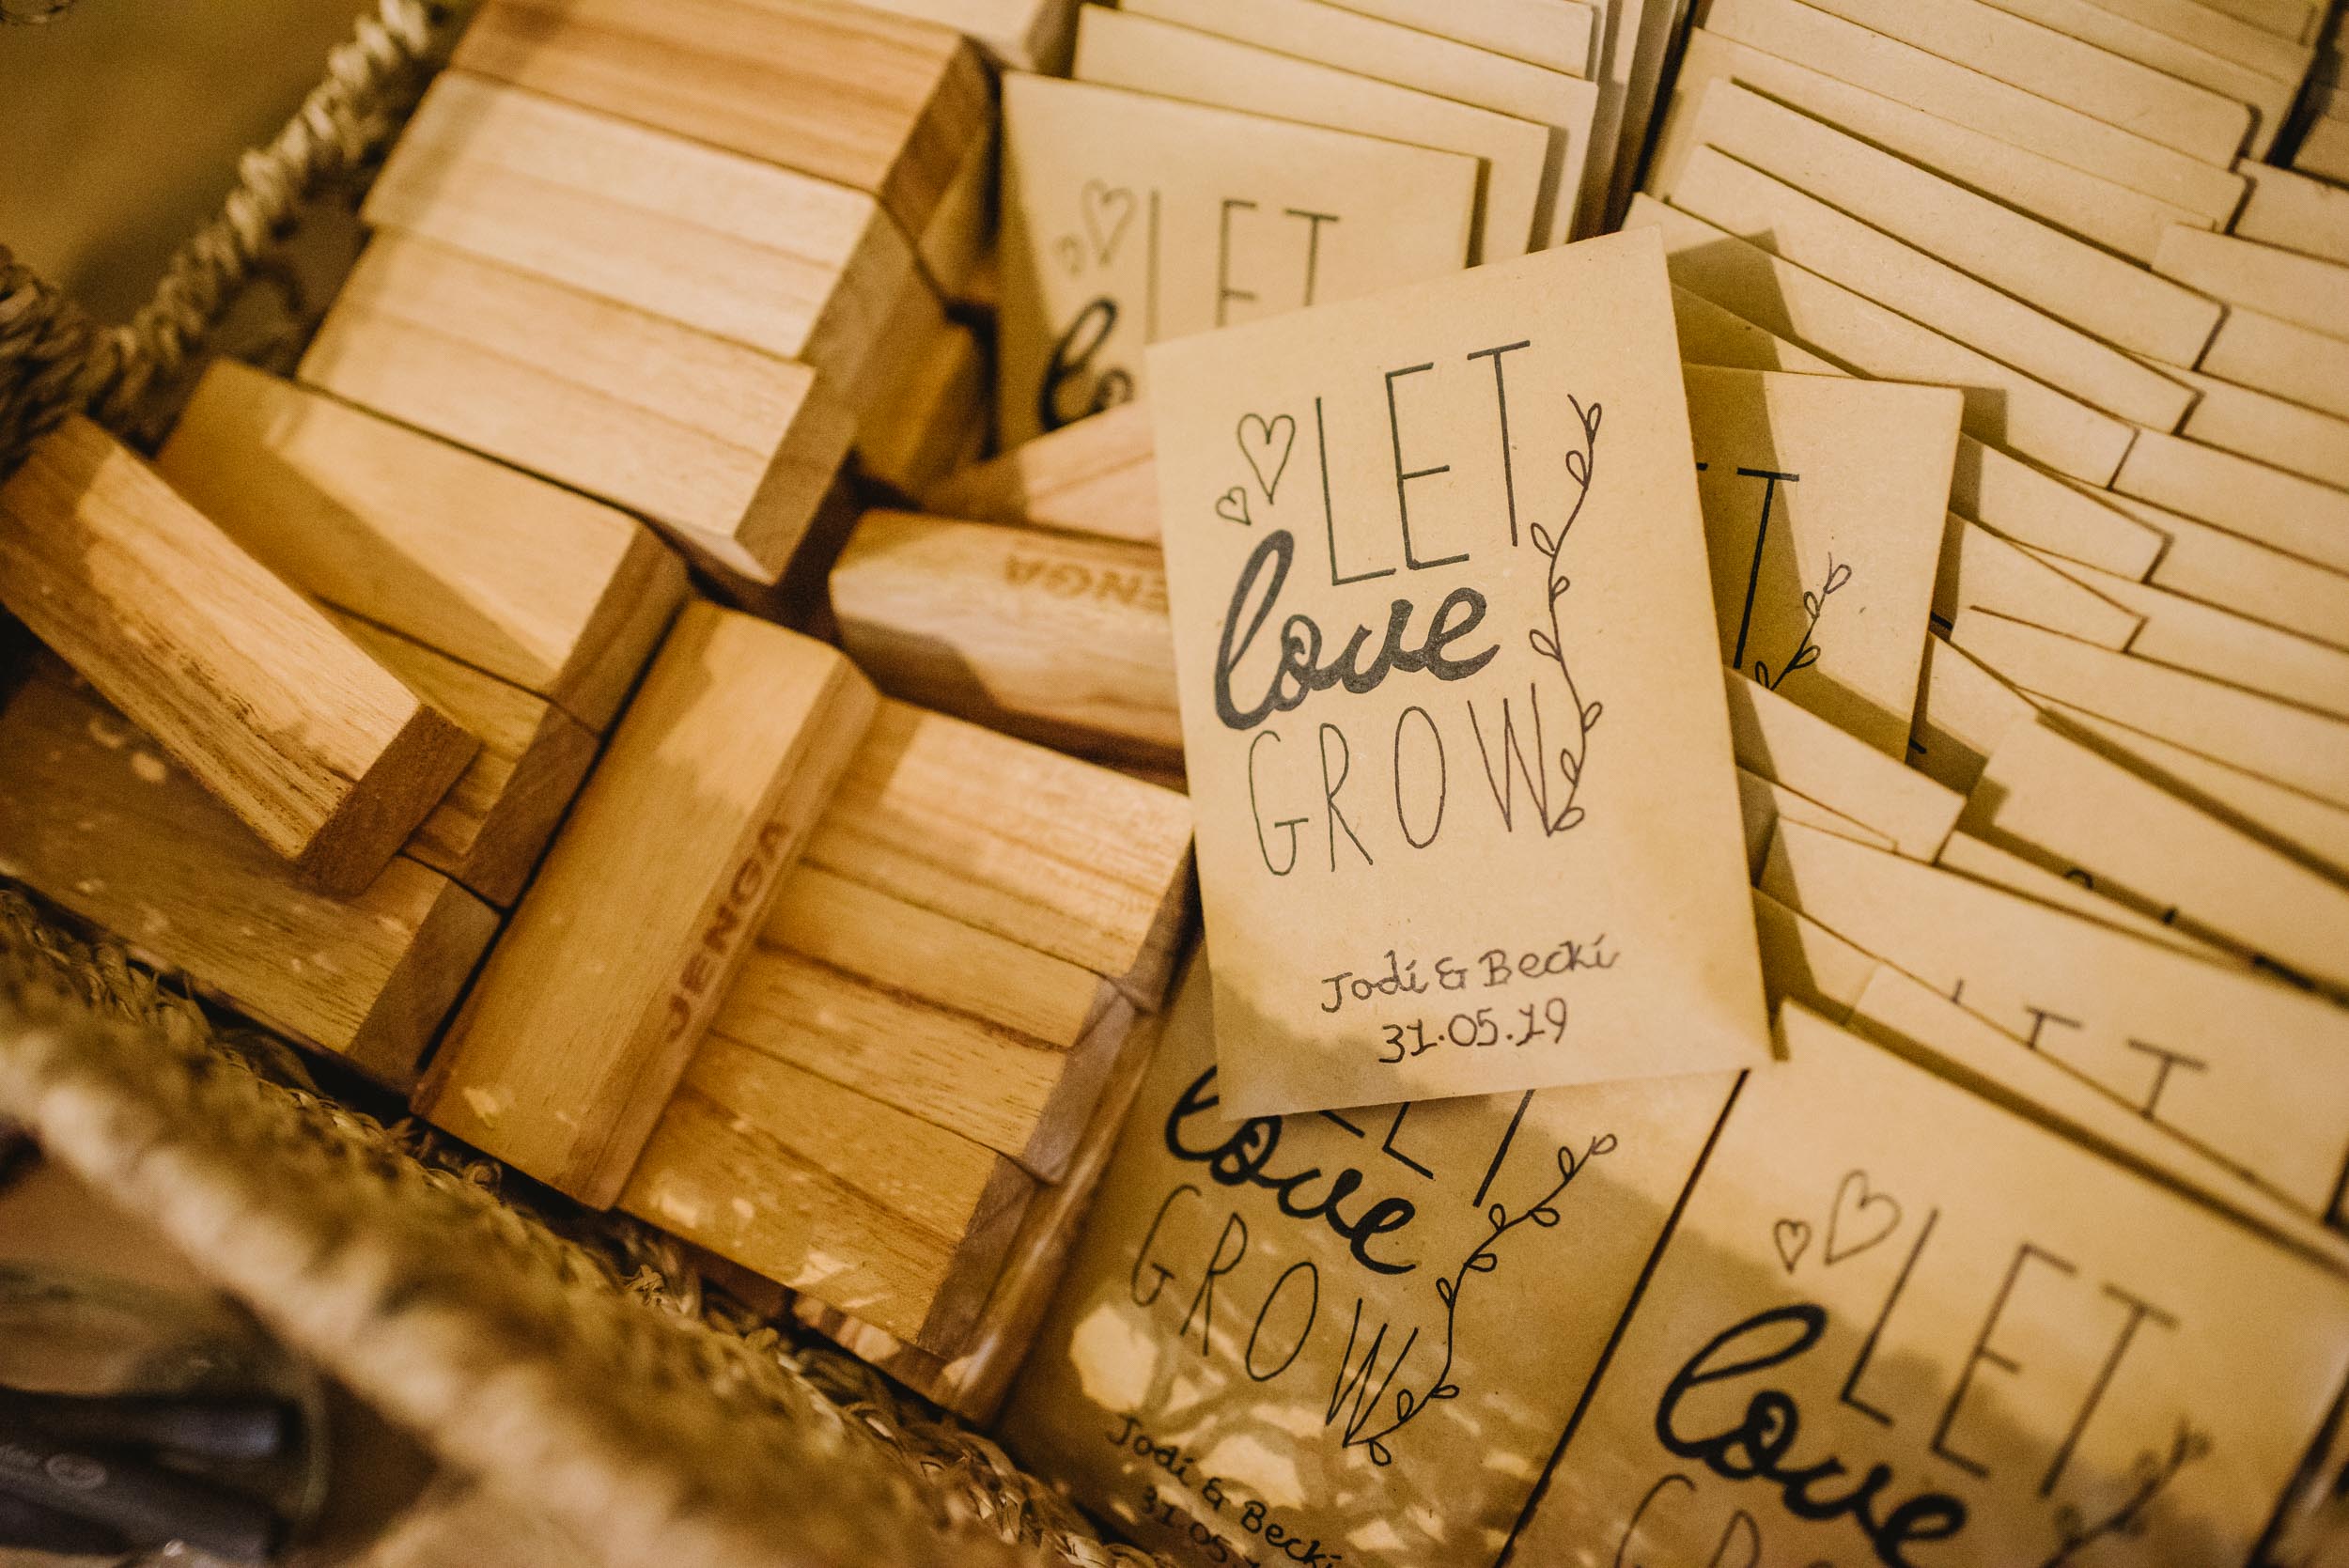 LET
lo
LET
love
GROW
Jodi & Becki
31.05.19
JENGA
ENGA
JENGA
T
LET
love
GROW
Jodi & Becki
31.05.
T T
LET
love